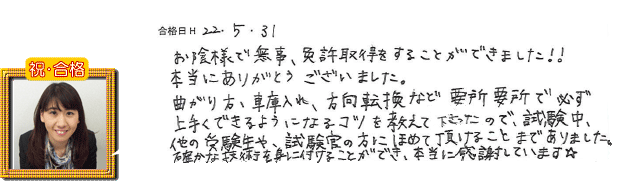 合格日 H 22・5・31
祝・合格
お陰様で無事、免許取得をすることができました!!
本当にありがとうございました。
曲がり方、車庫入れ、方向転換など要所要所で必ず
上手くできるようになるコツを教えて下さったので、試験中、
他の受験生や、試験官の方にほめて頂けることまでありました。
確かな技術を身に付けることができ、本当に感謝しています☆